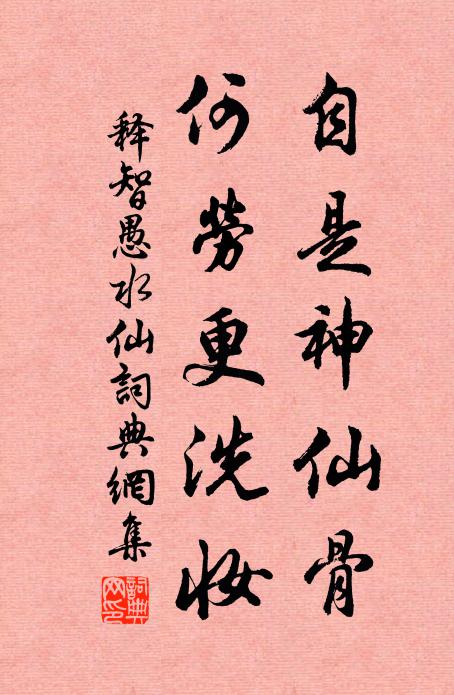 自是神仙骨
何劳更洗妆
释智愚水仙詞典網集
詞典网印